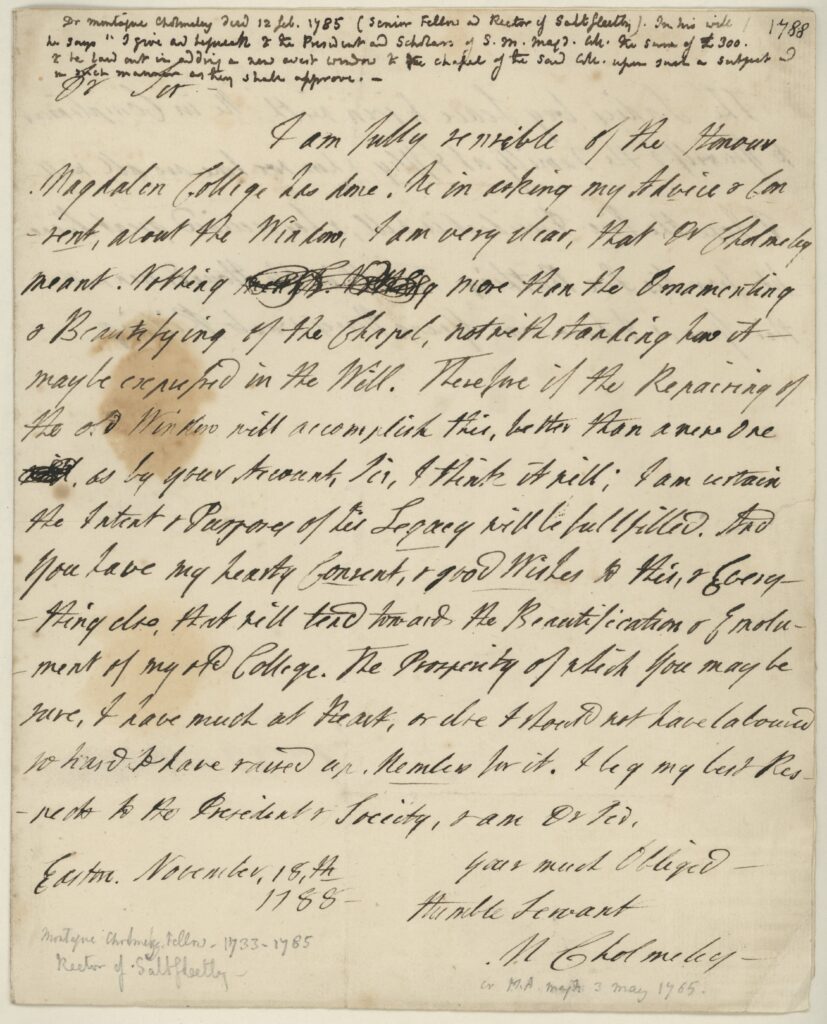 Dr Montague Cholmeley died 12 feb. 1785 (Senior Fellow and Rector of Saltfleetby). In his will
1788
he says "I give and bequeath to the President and Scholars of S. M. Magd. Coll. the sum of £300.
to be laid out in adding a new west window to the chapel of the said Coll. upon such a subject and
in such manner as they shall approve. —
Dr Sir —
I am fully sensible of the Honour
Magdalen College has done Me in asking my Advice & Con
-sent, about the Window, I am very clear, that Dr Cholmeley
meant Nothing more than the Ornamenting
& Beautifying of the Chapel, notwithstanding how it —
may be expressed in the Will. Therefore if the Repairing of
the old Window will accomplish this, better than a new one
, as by your Account, Sir, I think it will; I am certain
the Intent & Purposes of his Legacy will be fullfilled. And
You have my hearty Consent, & good Wishes to this, & Every-
-thing else, that will tend towards the Beautification & Emolu-
-ment of my old College. The Prosperity of which You may be
sure, I have much at Heart, or else I should not have laboured
so hard to have raised up Members for it. I beg my best Res-
-pects to the President & Society, & am Dr Sir,
your much Obliged —
Easton. November, 18,th
1788 —
Humble Servant
M Cholmeley —
Montague Cholmeley. Fellow - 1733-1785
Rector of Saltfleetby —
or M.A. 3 May 1765.